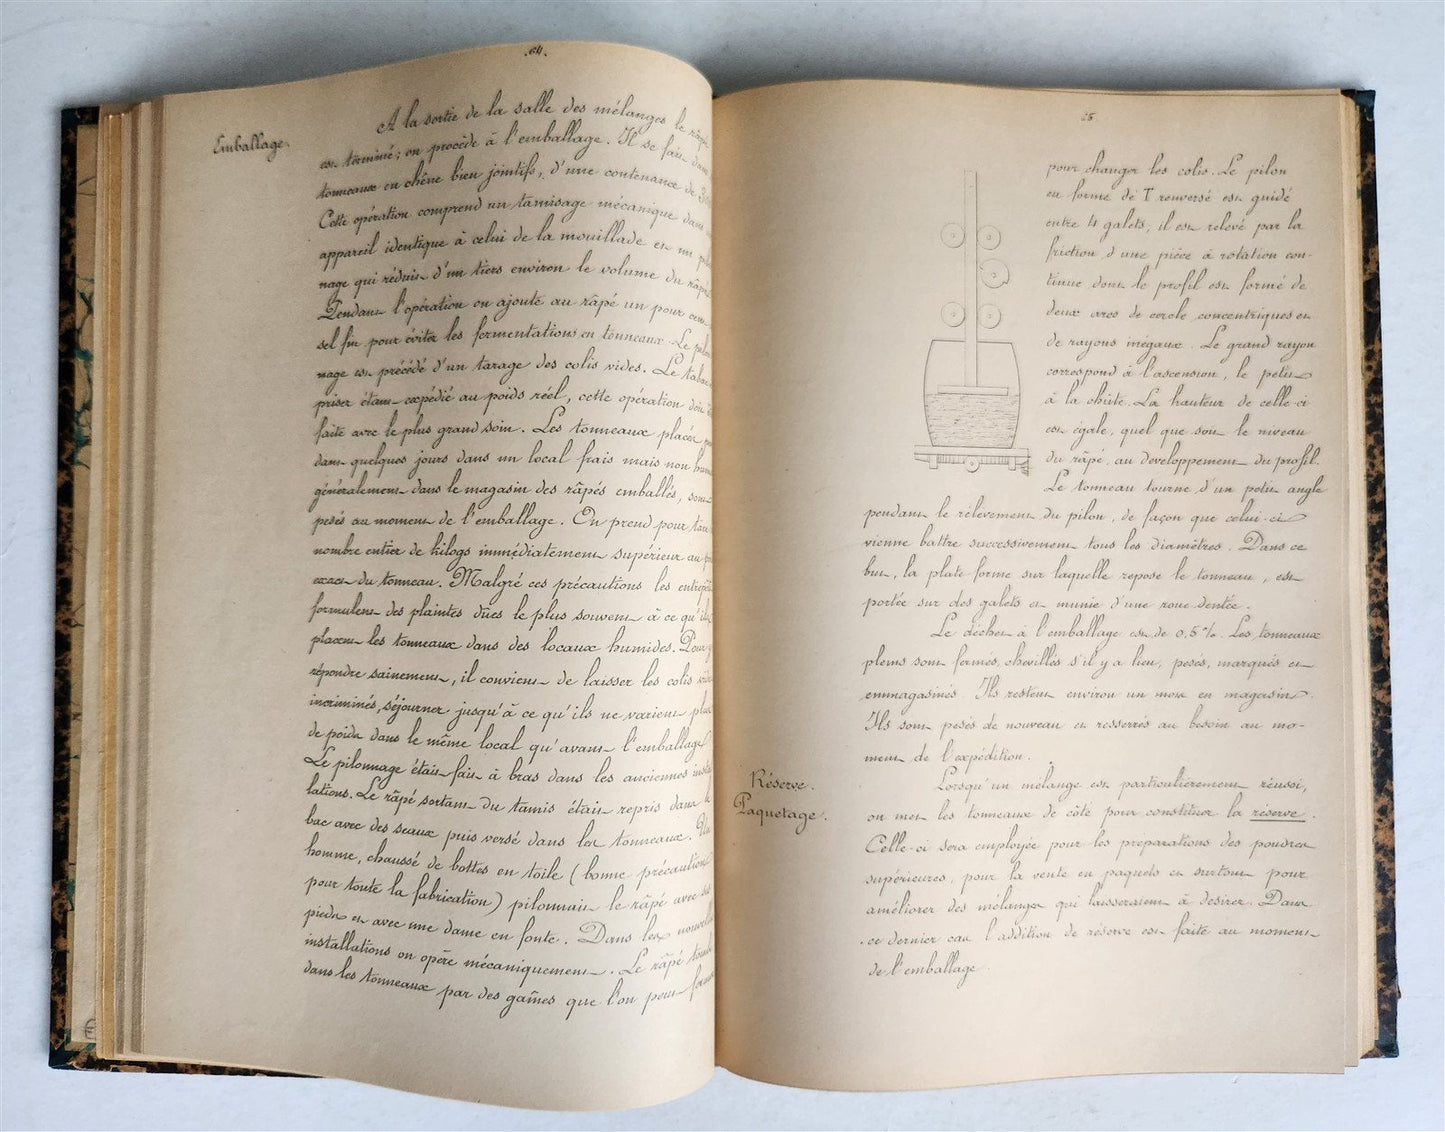 Emballage.
A la sortie de la salle des mélanges le râpé
est terminé; on procède à l'emballage. Il se fait dans
tonneaux en chêne bien jointifs, d'une contenance de
Cette opération comprend un tamisage mécanique dans
appareil identique à celui de la mouillade et un pilon
nage qui réduit d'un tiers environ le volume du râpé.
Pendant l'opération on ajoute au râpé un pour cent
sel fin pour éviter les fermentations en tonneaux. Le pilon
nage est précédé d'un tarage des colis vides. Le tabac
priser étant expédié au poids réel, cette opération doit
faite avec le plus grand soin. Les tonneaux placés
dant quelques jours dans un local frais mais non
généralement dans le magasin des râpés emballés, sont
pesés au moment de l'emballage. On prend pour tare
nombre entier de kilogs immédiatement supérieur au
exact du tonneau. Malgré ces précautions les
formulent des plaintes dûes le plus souvent à ce qu'ils
placent les tonneaux dans des locaux humides. Pour y
répondre sainement, il convient de laisser les colis vides
incriminés, séjourner jusqu'à ce qu'ils ne varient plus
de poids dans le même local qu'avant l'emballage.
Le pilonnage était fait à bras dans les anciennes instal
lations. Le râpé sortant du tamis était repris dans le
bac avec des seaux puis versé dans les tonneaux. Un
homme, chaussé de bottes en toile (bonne précaution
pour toute la fabrication) pilonnait le râpé avec ses
pieds et avec une dame en fonte. Dans les nouvelles
installations on opère mécaniquement. Le râpé tombe
dans les tonneaux par des gaînes que l'on peut fermer
pour changer les colis. Le pilon
en forme de T renversé est guidé
entre 4 galets, il est relevé par la
friction d'une pièce à rotation con-
tinue dont le profil est formé de
deux arcs de cercle concentriques et
de rayons inégaux. Le grand rayon
correspond à l'ascension, le petit
à la chûte. La hauteur de celle-ci
est égale, quel que soit le niveau
du râpé, au développement du profil.
Le tonneau tourne d'un petit angle
pendant le relèvement du pilon, de façon que celui-ci
vienne battre successivement tous les diamètres. Dans ce
but, la plate-forme sur laquelle repose le tonneau, est
portée sur des galets et munie d'une roue dentée.
Le déchet à l'emballage est de 0,5 %. Les tonneaux
pleins sont fermés, chevillés s'il y a lieu, pesés, marqués et
emmagasinés. Ils restent environ un mois en magasin.
Ils sont pesés de nouveau et resserrés au besoin au mo-
ment de l'expédition.
Réserve.
Paquetage.
Lorsqu'un mélange est particulièrement réussi,
on met les tonneaux de côté pour constituer la réserve.
Celle-ci sera employée pour les préparations des poudres
supérieures, pour la vente en paquets et surtout pour
améliorer des mélanges qui laisseraient à désirer. Dans
ce dernier cas l'addition de réserve est faite au moment
de l'emballage.